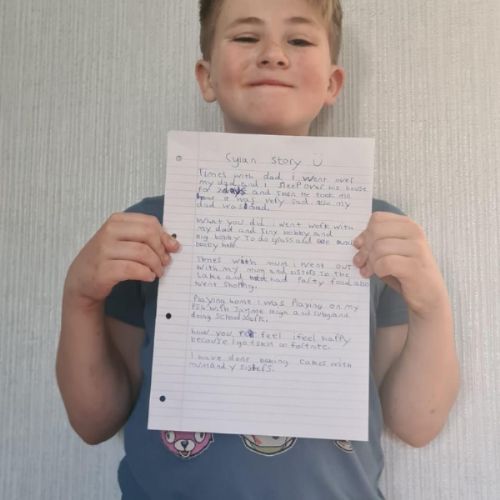 Cylan Story
Times with dad I went over
my dad and I sleep over his house
for 2 days and then he took me
home it was very sad me my
dad was sad.
What you did i went work with
my dad and and
big bobby To do grass and
Times with mum i went out
with my mum and sisters to the
lake and had Party food also
went Shoping.
Playing home i was Playing on my
PS4 with and
doing School work.
how you feel ifeel happy
because I got skin on fortnite.
I have done baking cakes with
mumandy sisters.